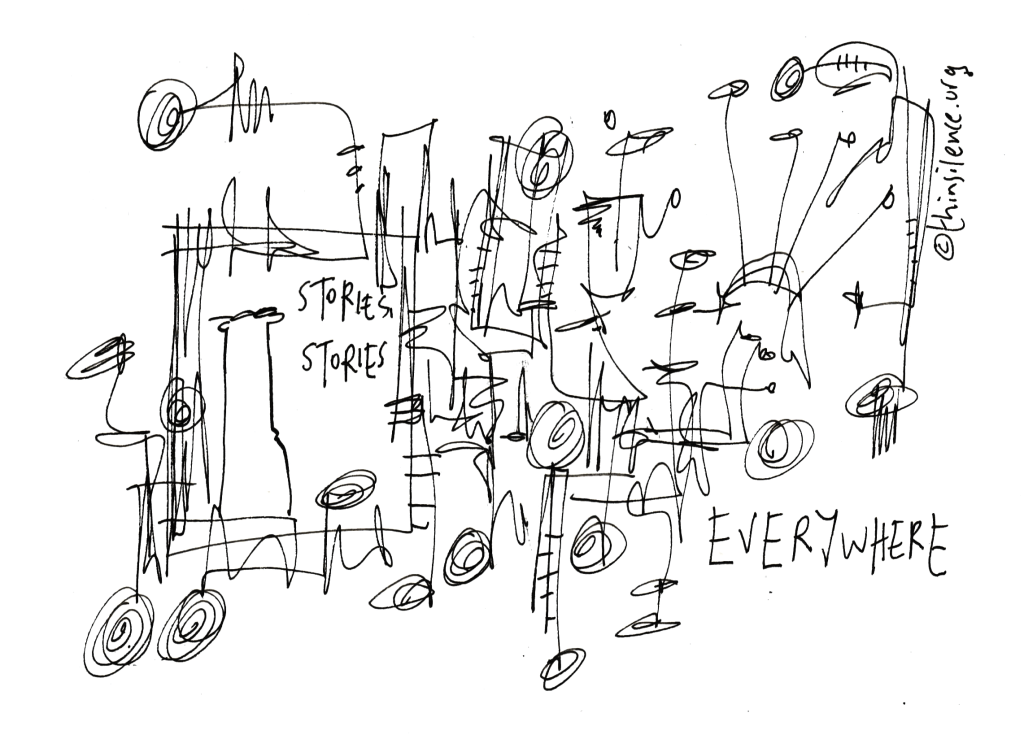 STORIES,
STORIES
EVERYWHERE
©thinsilence.org